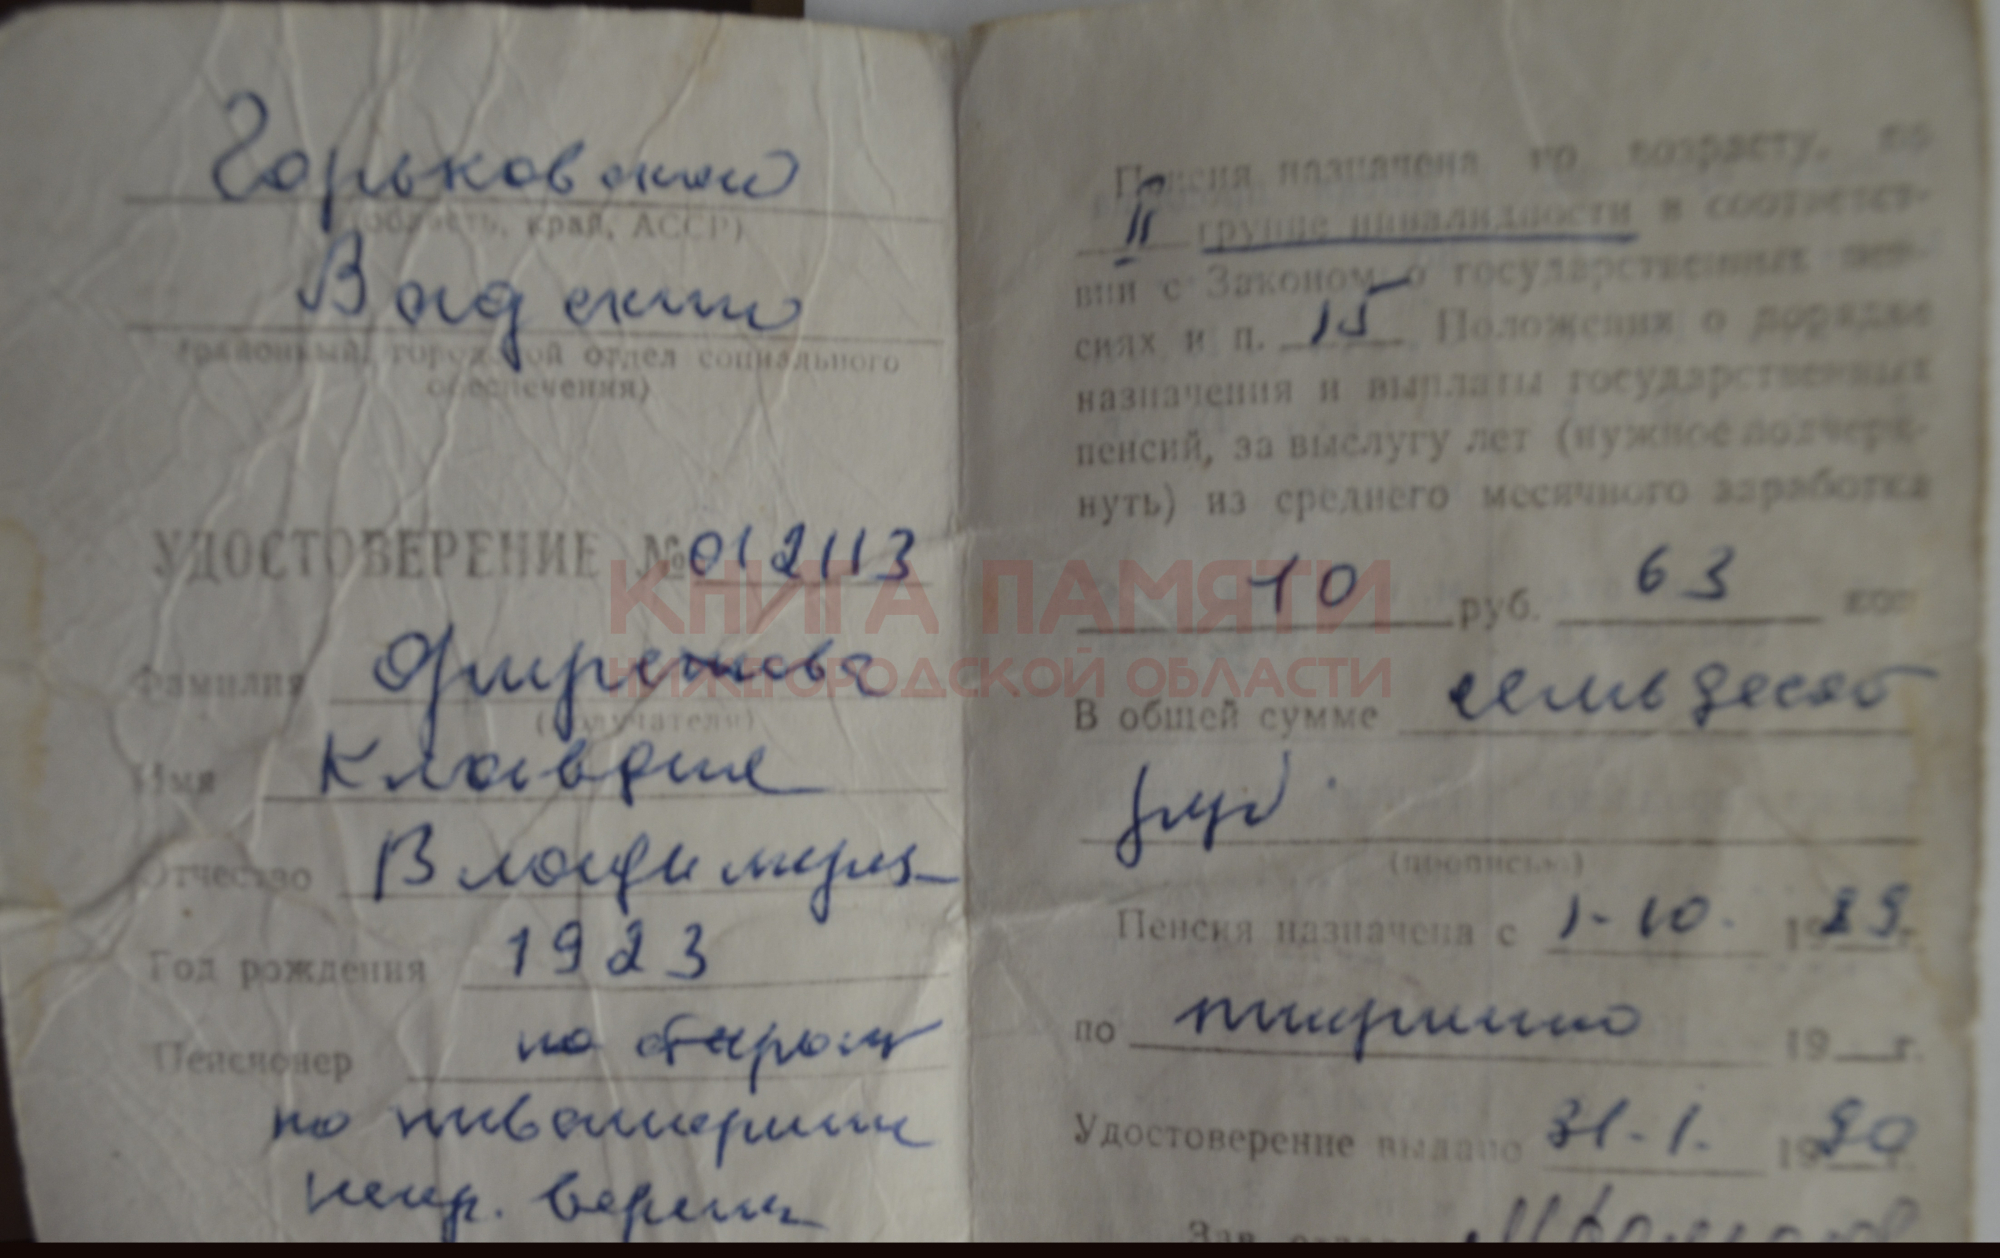 Горьковский
(область, край, АССР)
Вадский
(районный, городской отдел социального
обеспечения)
УДОСТОВЕРЕНИЕ № 012113
Фамилия
(получателя)
Имя Клавдия
Отчество Владимировна
Год рождения 1923
Пенсионер по
по
Пенсия назначена по возрасту, по
II группе инвалидности в соответст-
вии с Законом о государственных пен-
сиях и п. 15 Положения о порядке
назначения и выплаты государственных
пенсий, за выслугу лет (нужное подчерк-
нуть) из среднего месячного заработка
70 руб. 63 коп
В общей сумме семьдесят
руб.
(прописью)
Пенсия назначена с 1-10. 1989г.
по 19 г.
Удостоверение выдано 31-1. 1990 г.
Зав. отделом
КНИГА ПАМЯТИ
НИЖЕГОРОДСКОЙ ОБЛАСТИ